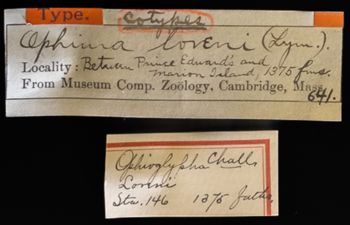 Type. cotypes
Ophiura loveni (Lym.).
Locality: Between Prince Edward's and
Marion Island, 1375 fms.
From Museum Comp. Zoology, Cambridge, Mass.
641.
Ophioglypha Chall.
Loveni
Sta. 146 1375 faths.